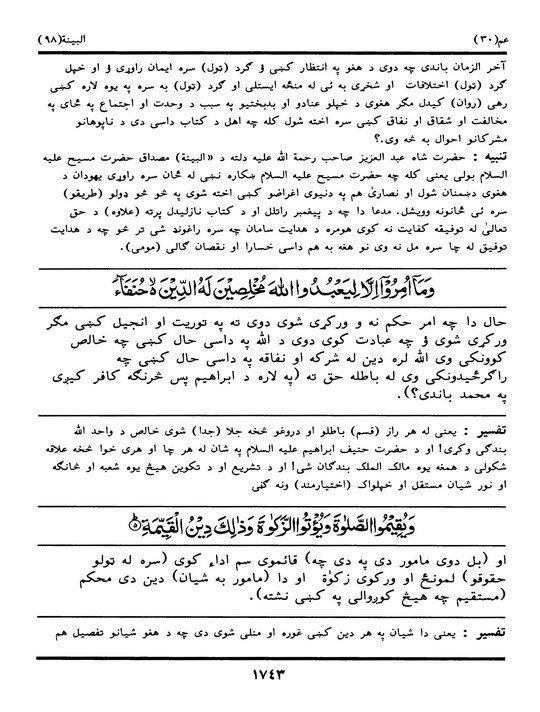 عم(٣٠)
البينة(٩٨)
آخر الزمان باندی چه دوی د هغو په انتظار کښی ؤ گرد (ټول) سره ایمان راوړی ؤ او خپل
گرد (ټول) اختلافات او شخړی به ئی له منځه ایستلی او گرد (ټول) به سره په یوه لاره کښی
رهی (روان) کیدل مگر هغوی د خپلو عنادو او بدبختیو په سبب د وحدت او اجتماع په ځای په
مخالفت او شقاق او نفاق کښی سره اخته شول کله چه اهل د کتاب داسی دی د ناپوهانو
مشرکانو احوال به څه وی.؟
تنبیه : حضرت شاه عبد العزیز صاحب رحمة الله علیه دلته د «البینة) مصداق حضرت مسیح علیه
السلام بولی یعنی کله چه حضرت مسیح علیه السلام ښکاره نښی له ځان سره راوړی یهودان د
هغوی دښمنان شول او نصاریٰ هم په دنیوی اغراضو کښی اخته شوی په څو څو ډولو (طریقو)
سره ئی ځانونه وویشل. مدعا دا چه د پیغمبر راتلل او د کتاب نازلیدل پرته (علاوه) د حق
تعالیٰ له توفیقه کفایت نه کوی هومره د هدایت سامان چه سره راغونډ شی تر څو چه د هدایت
توفیق له چا سره مل نه وی نو هغه به هم داسی خسارا او نقصان گالی (مومی).
وَمَآ اُمِرُوْٓا اِلَّا لِيَعْبُدُوا اللّٰهَ مُخْلِصِيْنَ لَهُ الدِّيْنَ ۙ حُنَفَآءَ
حال دا چه امر حکم نه ؤ ورکړی شوی دوی ته په توریت او انجیل کښی مگر
ورکړی شوی ؤ چه عبادت کوی دوی د الله په داسی حال کښی چه خالص
کوونکی وی الله لره دین له شرکه او نفاقه په داسی حال کښی چه
راگرځیدونکی وی له باطله حق ته (په لاره د ابراهیم پس څرنگه کافر کیږی
په محمد باندی؟).
تفسیر : یعنی له هر راز (قسم) باطلو او دروغو څخه جلا (جدا) شوی خالص د واحد الله
بندگی وکړی! او د حضرت حنیف ابراهیم علیه السلام په شان له هر چا او هری خوا څخه علاقه
شکولی د همغه یوه مالک الملک بندگان شی! او د تشریع او د تکوین هیڅ یوه شعبه او څانگه
او نور شیان مستقل او خپلواک (اختیارمند) ونه گڼی
وَيُقِيْمُوا الصَّلٰوةَ وَيُؤْتُوا الزَّكٰوةَ وَذٰلِكَ دِيْنُ الْقَيِّمَةِ ۝٥
او (بل دوی مامور دی په دی چه) قائموی سم اداء کوی (سره له ټولو
حقوقو) لمونځ او ورکوی زکوٰة او دا (مامور به شیان) دین دی محکم
(مستقیم چه هیڅ کوږوالی په کښی نشته).
تفسیر : یعنی دا شیان په هر دین کښی غوره او منلی شوی دی چه د هغو شیانو تفصیل هم
١٧٤٣